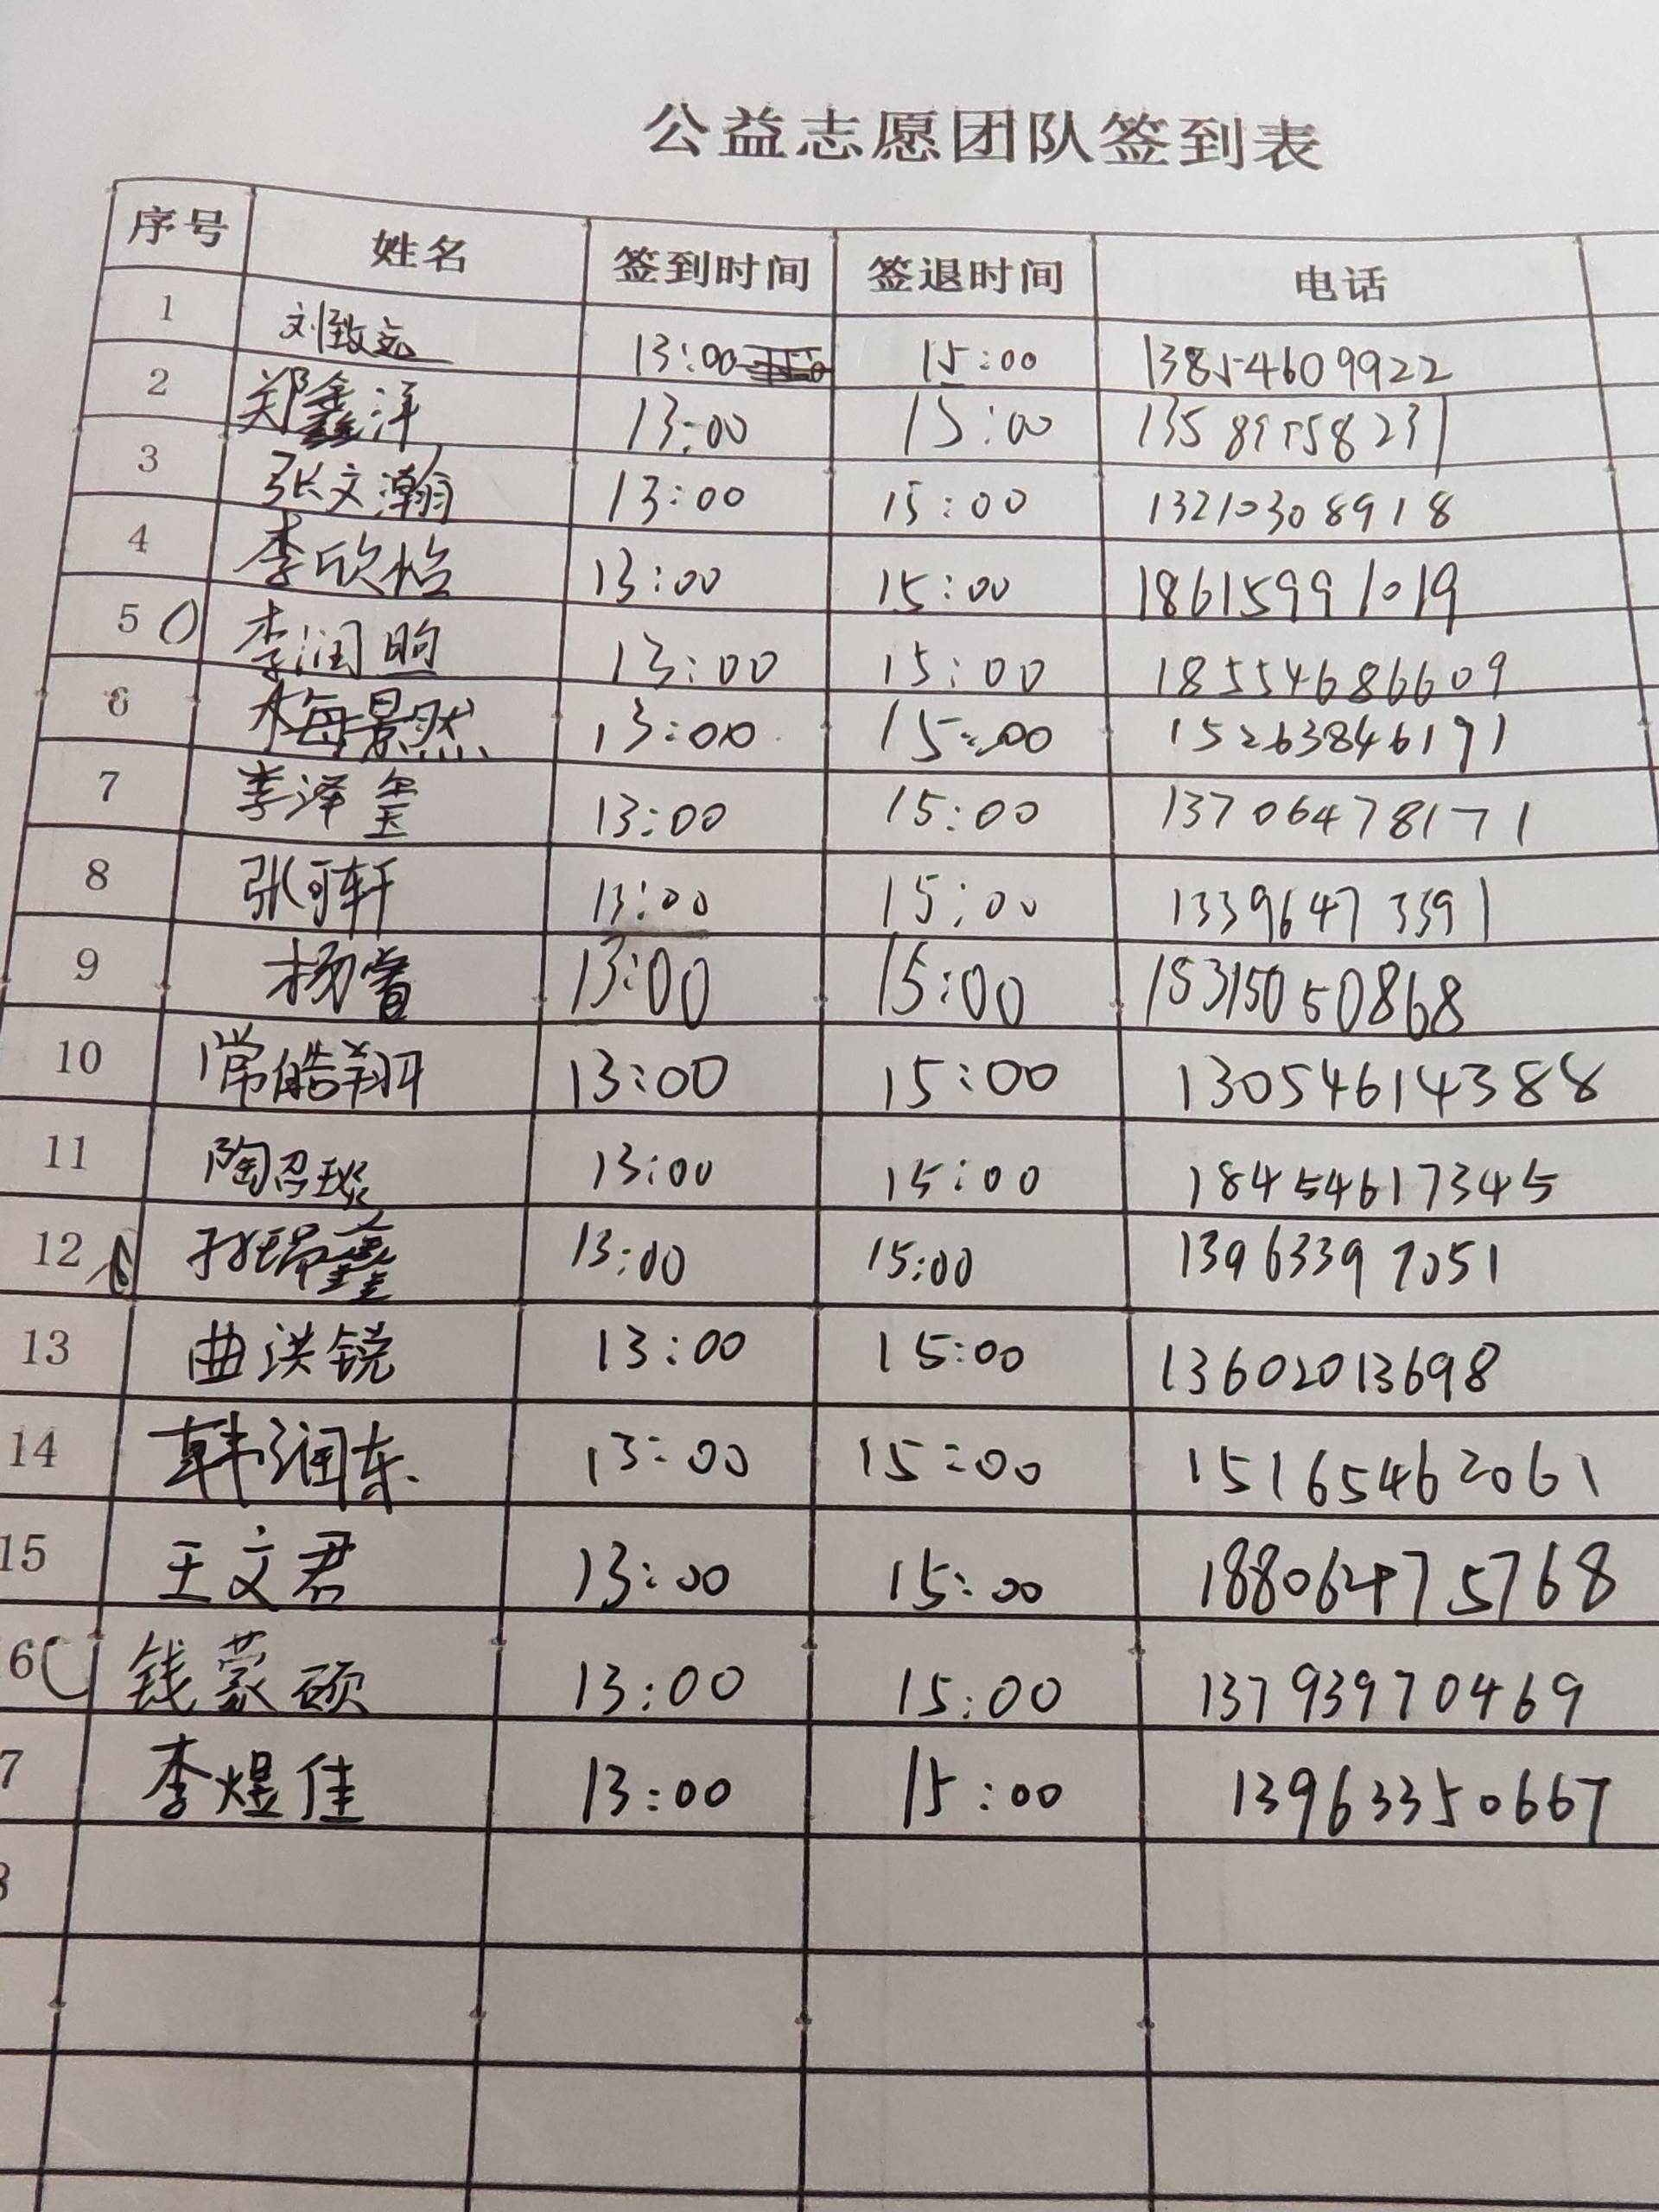 公益志愿团队签到表
序号 姓名 签到时间 签退时间 电话
1 刘致远 13:00 15:00 13854609922
2 郑鑫洋 13:00 15:00 13589958231
3 张文瀚 13:00 15:00 13210308918
4 李欣怡 13:00 15:00 18615991019
5 李润煦 13:00 15:00 18554686609
6 梅景然 13:00 15:00 15263846191
7 李泽玺 13:00 15:00 13706478171
8 张可轩 13:00 15:00 13396473391
9 杨睿 13:00 15:00 15315050868
10 常皓翔 13:00 15:00 13054614388
11 陶召琰 13:00 15:00 18454617345
12 孙瑞鑫 13:00 15:00 13963397051
13 曲洪锐 13:00 15:00 13602013698
14 韩润东 13:00 15:00 15165462061
15 王文君 13:00 15:00 18806475768
6 钱蒙硕 13:00 15:00 13793970469
7 李煜佳 13:00 15:00 13963350667